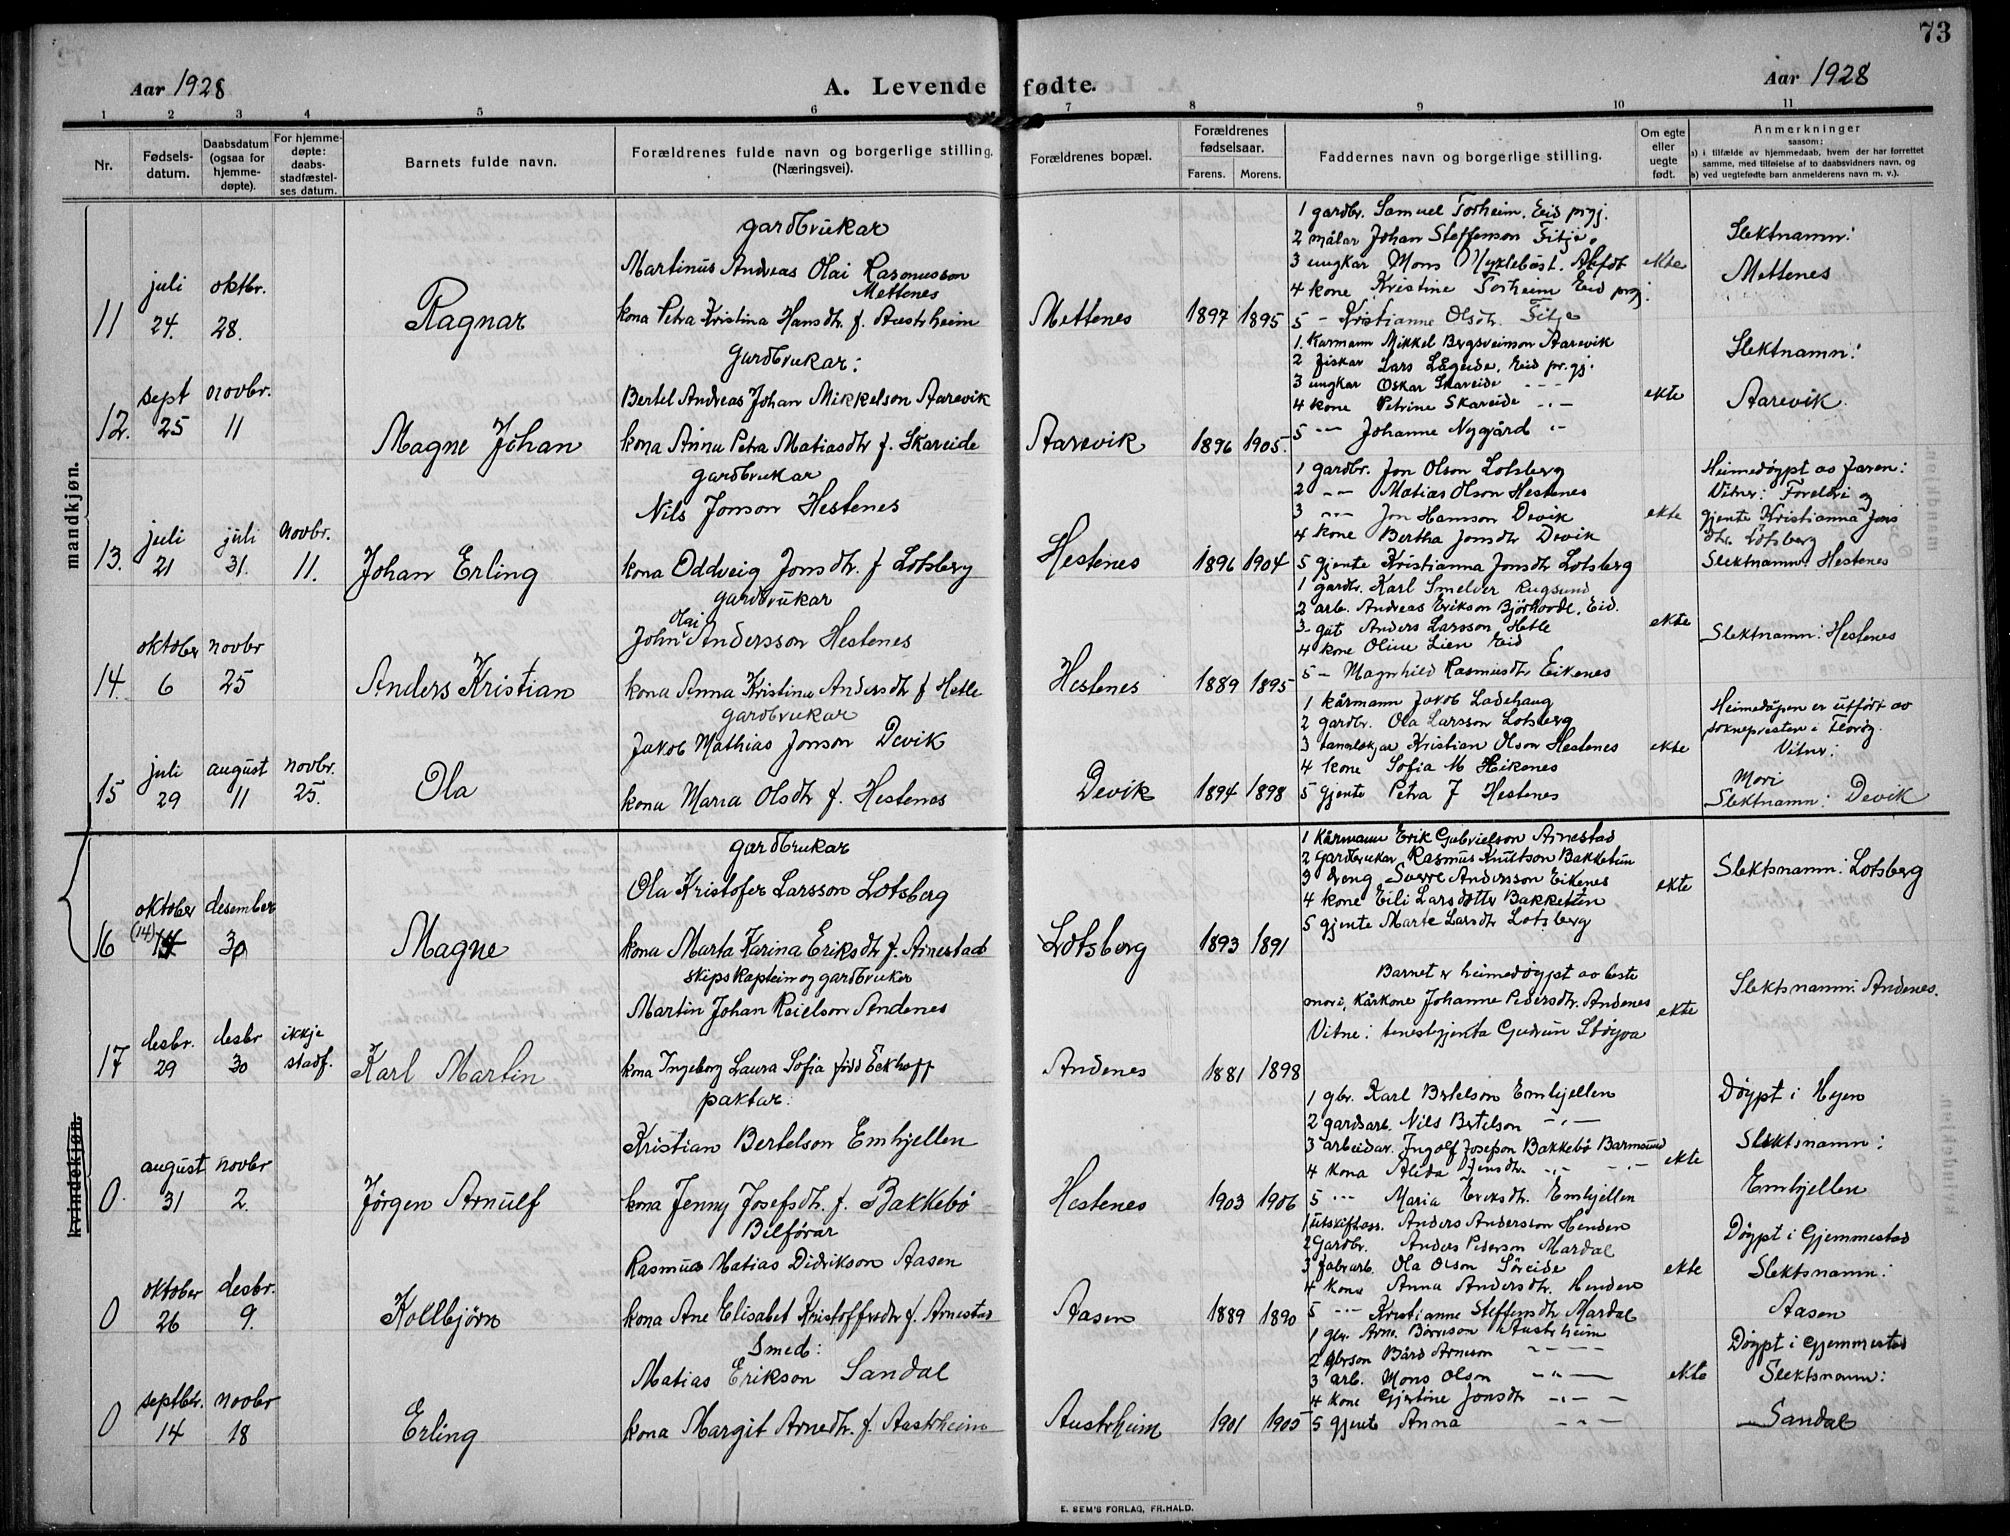 73
Aar 1928
A. Levende fødte.
Aar 1928
1 2 3 4 5 6 7 8 9 10 11
Nr.
Fødsels-
datum.
Daabsdatum
(ogsaa for
hjemme-
døpte).
For hjemme-
døpte:
daabs-
stadfæstel-
ses datum.
Barnets fulde navn.
Forældrenes fulde navn og borgerlige stilling.
(Næringsvei).
Forældrenes bopæl.
Forældrenes
fødselsaar.
Farens. Morens.
Faddernes navn og borgerlige stilling.
Om egte
eller
uegte
født.
Anmerkninger
saasom:
a) i tilfælde av hjemmedaab, hvem der har forrettet
samme, med tilføielse af to daabsvidners navn, og
b) ved uegtefødte barn anmelderens navn m. v.).
mandkjøn.
11
juli
24.
oktbr.
28.
Ragnar
gardbrukar
Martinus Andreas Olai Rasmusson
Mettenes
kona Petra Kristina Hansdtr. f. Austrheim
Mettenes
1897 1895
1 gardbr. Samuel Torheim, Eid prgj.
2 målar Johan Steffenson Fitje.
3 ungkar Mons Myklebust. Alfot
4 kone Kristine Torheim Eid prgj.
5 — Kristianne Olsdtr. Fitje
ekte
Slektnamn:
Mettenes
12.
sept
25
novbr.
11
Magne Johan
Gardbrukar:
Bertel Andreas Johan Mikkelson Aarevik
kona Anna Petra Matiasdtr f. Skareide
Aarevik
1896 1905.
1. Karmann Mikkel Bergsveinson Aarevik
2 fiskar Lars Lågeide, Eid pr.gj.
3 ungkar Oskar Skareide - - -
4 kone Petrine Skareide -..-
5 -"- Johanne Nygård "-
ekte
Slektnamn:
Aarevik.
13.
juli
21
juli
31.
novbr.
11.
Johan Erling
gardbrukar
Nils Jonson Hestenes
kona Oddveig Jonsdtr. f Lotsberg
Hestenes
1896 1904
1 gardbr. Jon Olson Lotsberg
2 -"- Matias Olson Hestenes
3 -"- Jon Hansson Devik
4 kone Bertha Jonsdtr Devik
5 gjente Kristianna Jonsdtr Lotsberg
ekte
Heimedøypt av faren:
Vitner: Foreldri og
gjente Kristianna Jons
dtr. Lotsberg
Slektnamn: Hestenes
14.
oktober
6
novbr
25
Anders Kristian
gardbrukar
Olai
John Andersson Hestenes
kona Anna Kristina Andersdtr f Hetle
Hestenes
1889 1895
1 gardbr. Karl Smelder Rugsund
2 arb. Andreas Erikson Bjørhovde, Eid.
3- gut Anders Larsson Hetle
4 kone Oline Lien Eid
5 — Magnhild Rasmusdtr Eikenes
ekte
Slektnamn: Hestenes
15
juli
29
august
11
novbr.
25.
Ola
gardbrukar
Jakob Mathias Jonson Devik
kona Maria Olsdtr f. Hestenes
Devik
1894 1898
1 kårmann Jakob Ladehaug
2 gardbr. Ola Larsson Lotsberg
3 Kristian Olson Hestenes
4 kone Sofia M Heikenes
5 gjente Petra J Hestenes
ekte
Heimedåpen er utført av
soknepresten i Florøy.
Vitner:
Mori
Slektnamn: Devik
16
oktober
(14) 14
desember
30
Magne
gardbrukar
Ola Kristofer Larsson Lotsberg
kona Marta Karina Eriksdtr f. Arnestad
Lotsberg
1893 1891
1 Kårmann Erik Gabrielson Arnestad
2 Gardbrukar Rasmus Knutson Bakketun
3 dreng Sverre Andersson Eikenes
4 kone Eili Larsdotter Bakketun
5 gjente Marte Larsdtr Lotsberg
ekte
Slektsnamn: Lotsberg
17
desbr.
29
desbr
30
ikkje
stadf.
Karl Martin
skipskaptein og gardbruker
Martin Johan Reielson Andenes
kona Ingeborg Laura Sofia född Eckhoff
Andenes
1881 1898
Barnet er heimedøypt av beste
mori, Kårkone Johanne Pedersdtr. Andenes
Vitne: tenestgjenta Gudrun Støyva
ekte
Slektsnamn: Andenes.
kvindkjøn.
0
august
31
novbr
2.
Jørgen Arnulf
paktar:
Kristian Bertelson Emhjellen
kona Jenny Josefsdtr. f. Bakkebø
Hestenes
1903 1906
1 gbr. Karl Bertelson Emhjellen
2 gardsarb. Nils Bertelson -"-
3 arbeidar. Ingolf Josefson Bakkebø Barmsund
4 kona Alida Jensdtr -"- -"-
5 -"- Maria Eriksdtr. Emhjellen
ekte
Døypt i Hyen
Slektsnamn:
Emhjellen
0
oktober
26
desbr.
9.
Kollbjørn
Bilførar
Rasmus Matias Didrikson Aasen
kona Ane Elisabet Kristoffersdtr f. Arnestad
Aasen
1889 1890
1 utskiftass. Anders Andersson Henden
2 Gardbr. Anders Pederson Mardal
3 fabrarb. Ola Olson Søreide
4 kona Anna Andersdtr. Henden
5 -"- Kristianne Steffensdtr Mardal
ekte
Døypt i Gjemmestad
Slektsnamn:
Aasen
0
septbr.
14
novbr
18
Erling
Smed:
Matias Erikson Sandal
kona Margit Arnedtr. f. Austrheim
Austrheim
1901 1905
1 gbr. Arne Børreson Austrheim
2 gbrson Bård Arneson - - - -
3 arb. Mons Olson -"- —
4 kone Gjertine Jonsdtr -"- —
5 gjente Anna -"- —
ekte
Døypt i Gjemmestad
Slektsnamn:
Sandal
E. SEM'S FORLAG, FR.HALD.